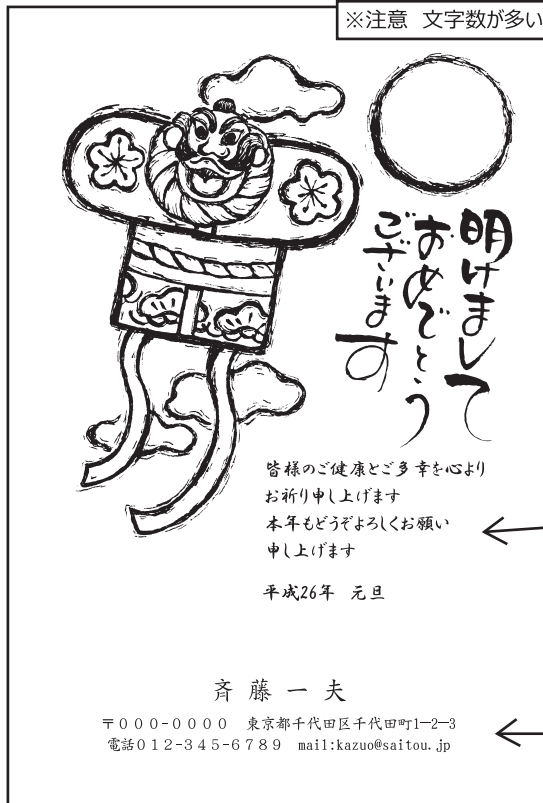 ※注意 文字数が多い
明けまして
おめでとう
ございます
皆様のご健康とご多幸を心より
お祈り申し上げます
本年もどうぞよろしくお願い
申し上げます
平成26年 元旦
斉藤一夫
〒000-0000 東京都千代田区千代田町1-2-3
電話012-345-6789 mail:kazuo@saitou.jp